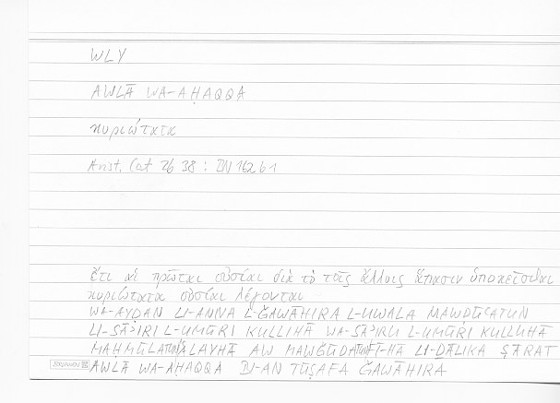 WLY
AWLĀ WA-AḤAQQA
κυριώτατα
Arist. Cat 2b 38 : IN 162b1
ἔτι αἱ πρῶται οὐσίαι διὰ τὸ ταῖς ἄλλοις ἅπασιν ὑποκεῖσθαι
κυριώτατα οὐσίαι λέγονται
WA-AYḌAN LI-ANNA L-ǦAWĀHIRA L-UWALA MAWḌŪʿATUN
LI-SĀʾIRI L-UMŪRI KULLIHĀ WA-SĀʾIRU L-UMŪRI KULLUHĀ
MAḤMŪLATUN ʿALAYHĀ AW MAWǦŪDATUN FĪ-HĀ LI-ḎĀLIKA ṢĀRAT
AWLĀ WA-AḤAQQA BI-AN TŪṢAFA ǦAWĀHIRA